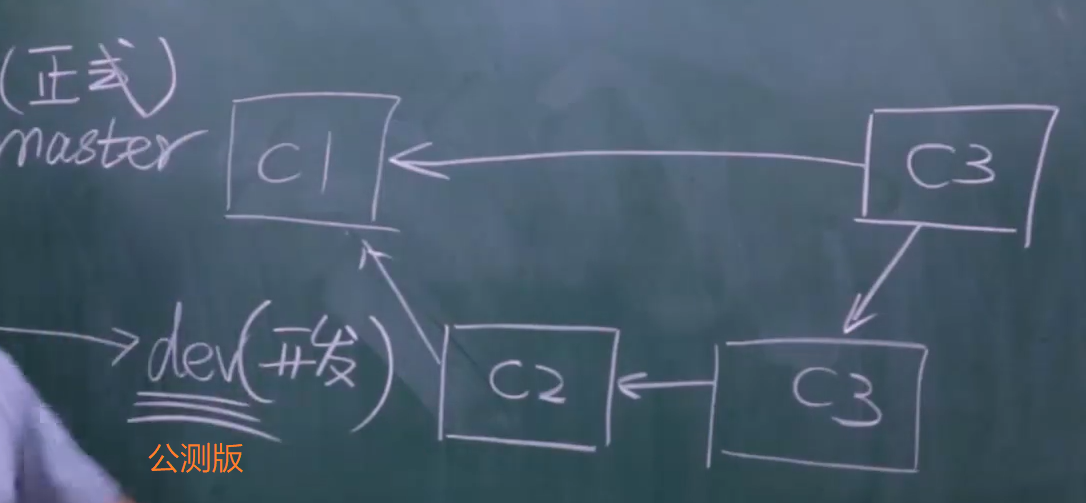 (正式)
master
C1
C3
dev(开发)
C2
C3
公测版